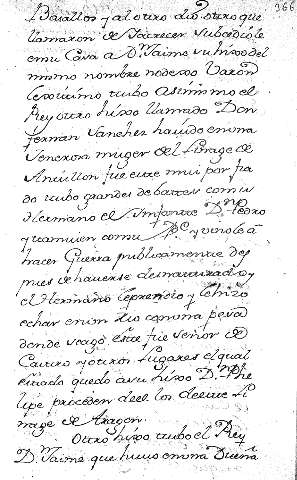 366
Baiallos y al otro dio otro que
llamaron de Jacrecer subcedió le
en su Casa a Dn Jaime su hixo del
mismo nombre no dexo Varon
Lexitimo tubo asimismo el
Rey otro hixo llamado Don
fernan Sanchez havido en una
Señora muger del Linage de
Antillon fue este mui porfia
do tubo grandes debattes con su
Hermano el Infante Dn Pedro
y tamvien con su Pe y vinole à
hacer Guerra publicamente des
pues de haverse desnaturalizado y
el Hermano le prendio y le hizo
echar en un Rio con una pesa
donde se ago, este fue señor de
Castro y otros Lugares el qual
estado quedo a su hixo Dn Phe
lipe proceden de el los de este Li
nage de Aragon.
Otro hixo tubo el Rey
Dn Jaime que huvo en una Dueña